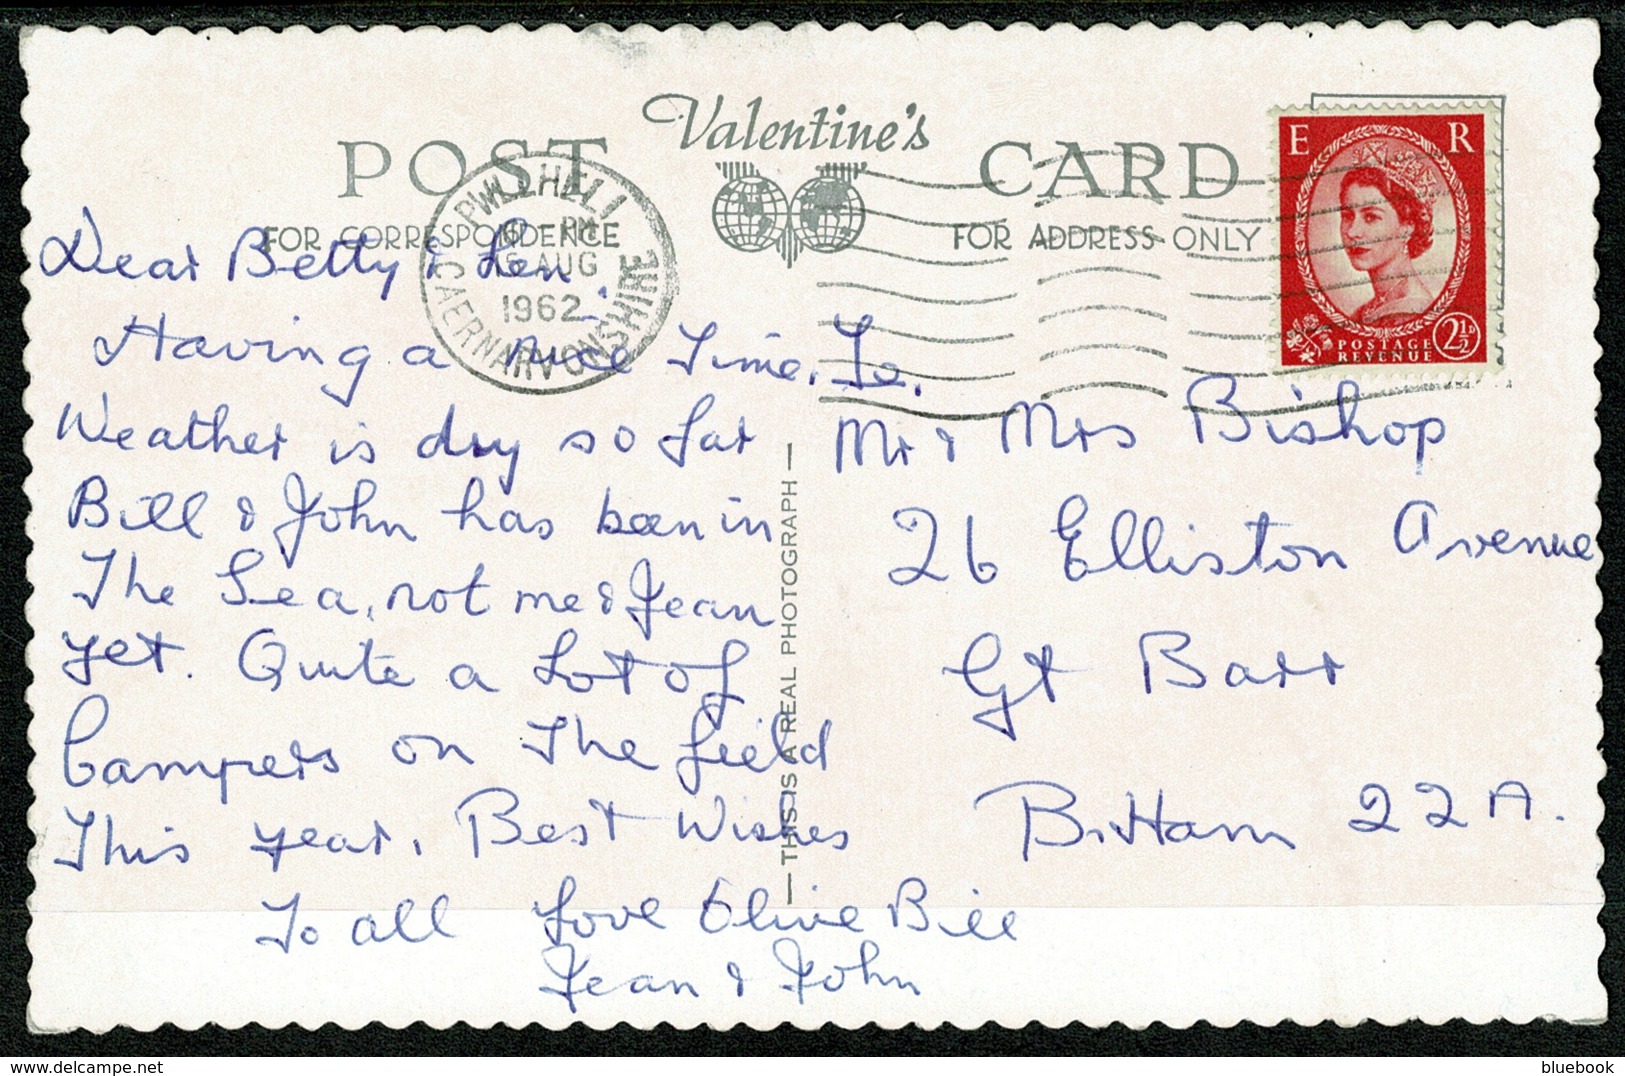 Valentine's
POST CARD
FOR CORRESPONDENCE
FOR ADDRESS ONLY
PWLLHELI
PM
AUG
1962
CAERNARVONSHIRE
E R
POSTAGE
REVENUE
2½D
Dear Betty & Len,
Having a nice Time.
Weather is dry so far
Bill & John has been in
The Sea, not me & Jean
yet. Quite a Lot of
Campers on The field
This year. Best Wishes
To all Love Olive Bill
Jean & John
— THIS IS A REAL PHOTOGRAPH —
To.
Mr & Mrs Bishop
26 Elliston Avenue
Gt Barr
B.Ham 22A.
delcampe.net
bluebook